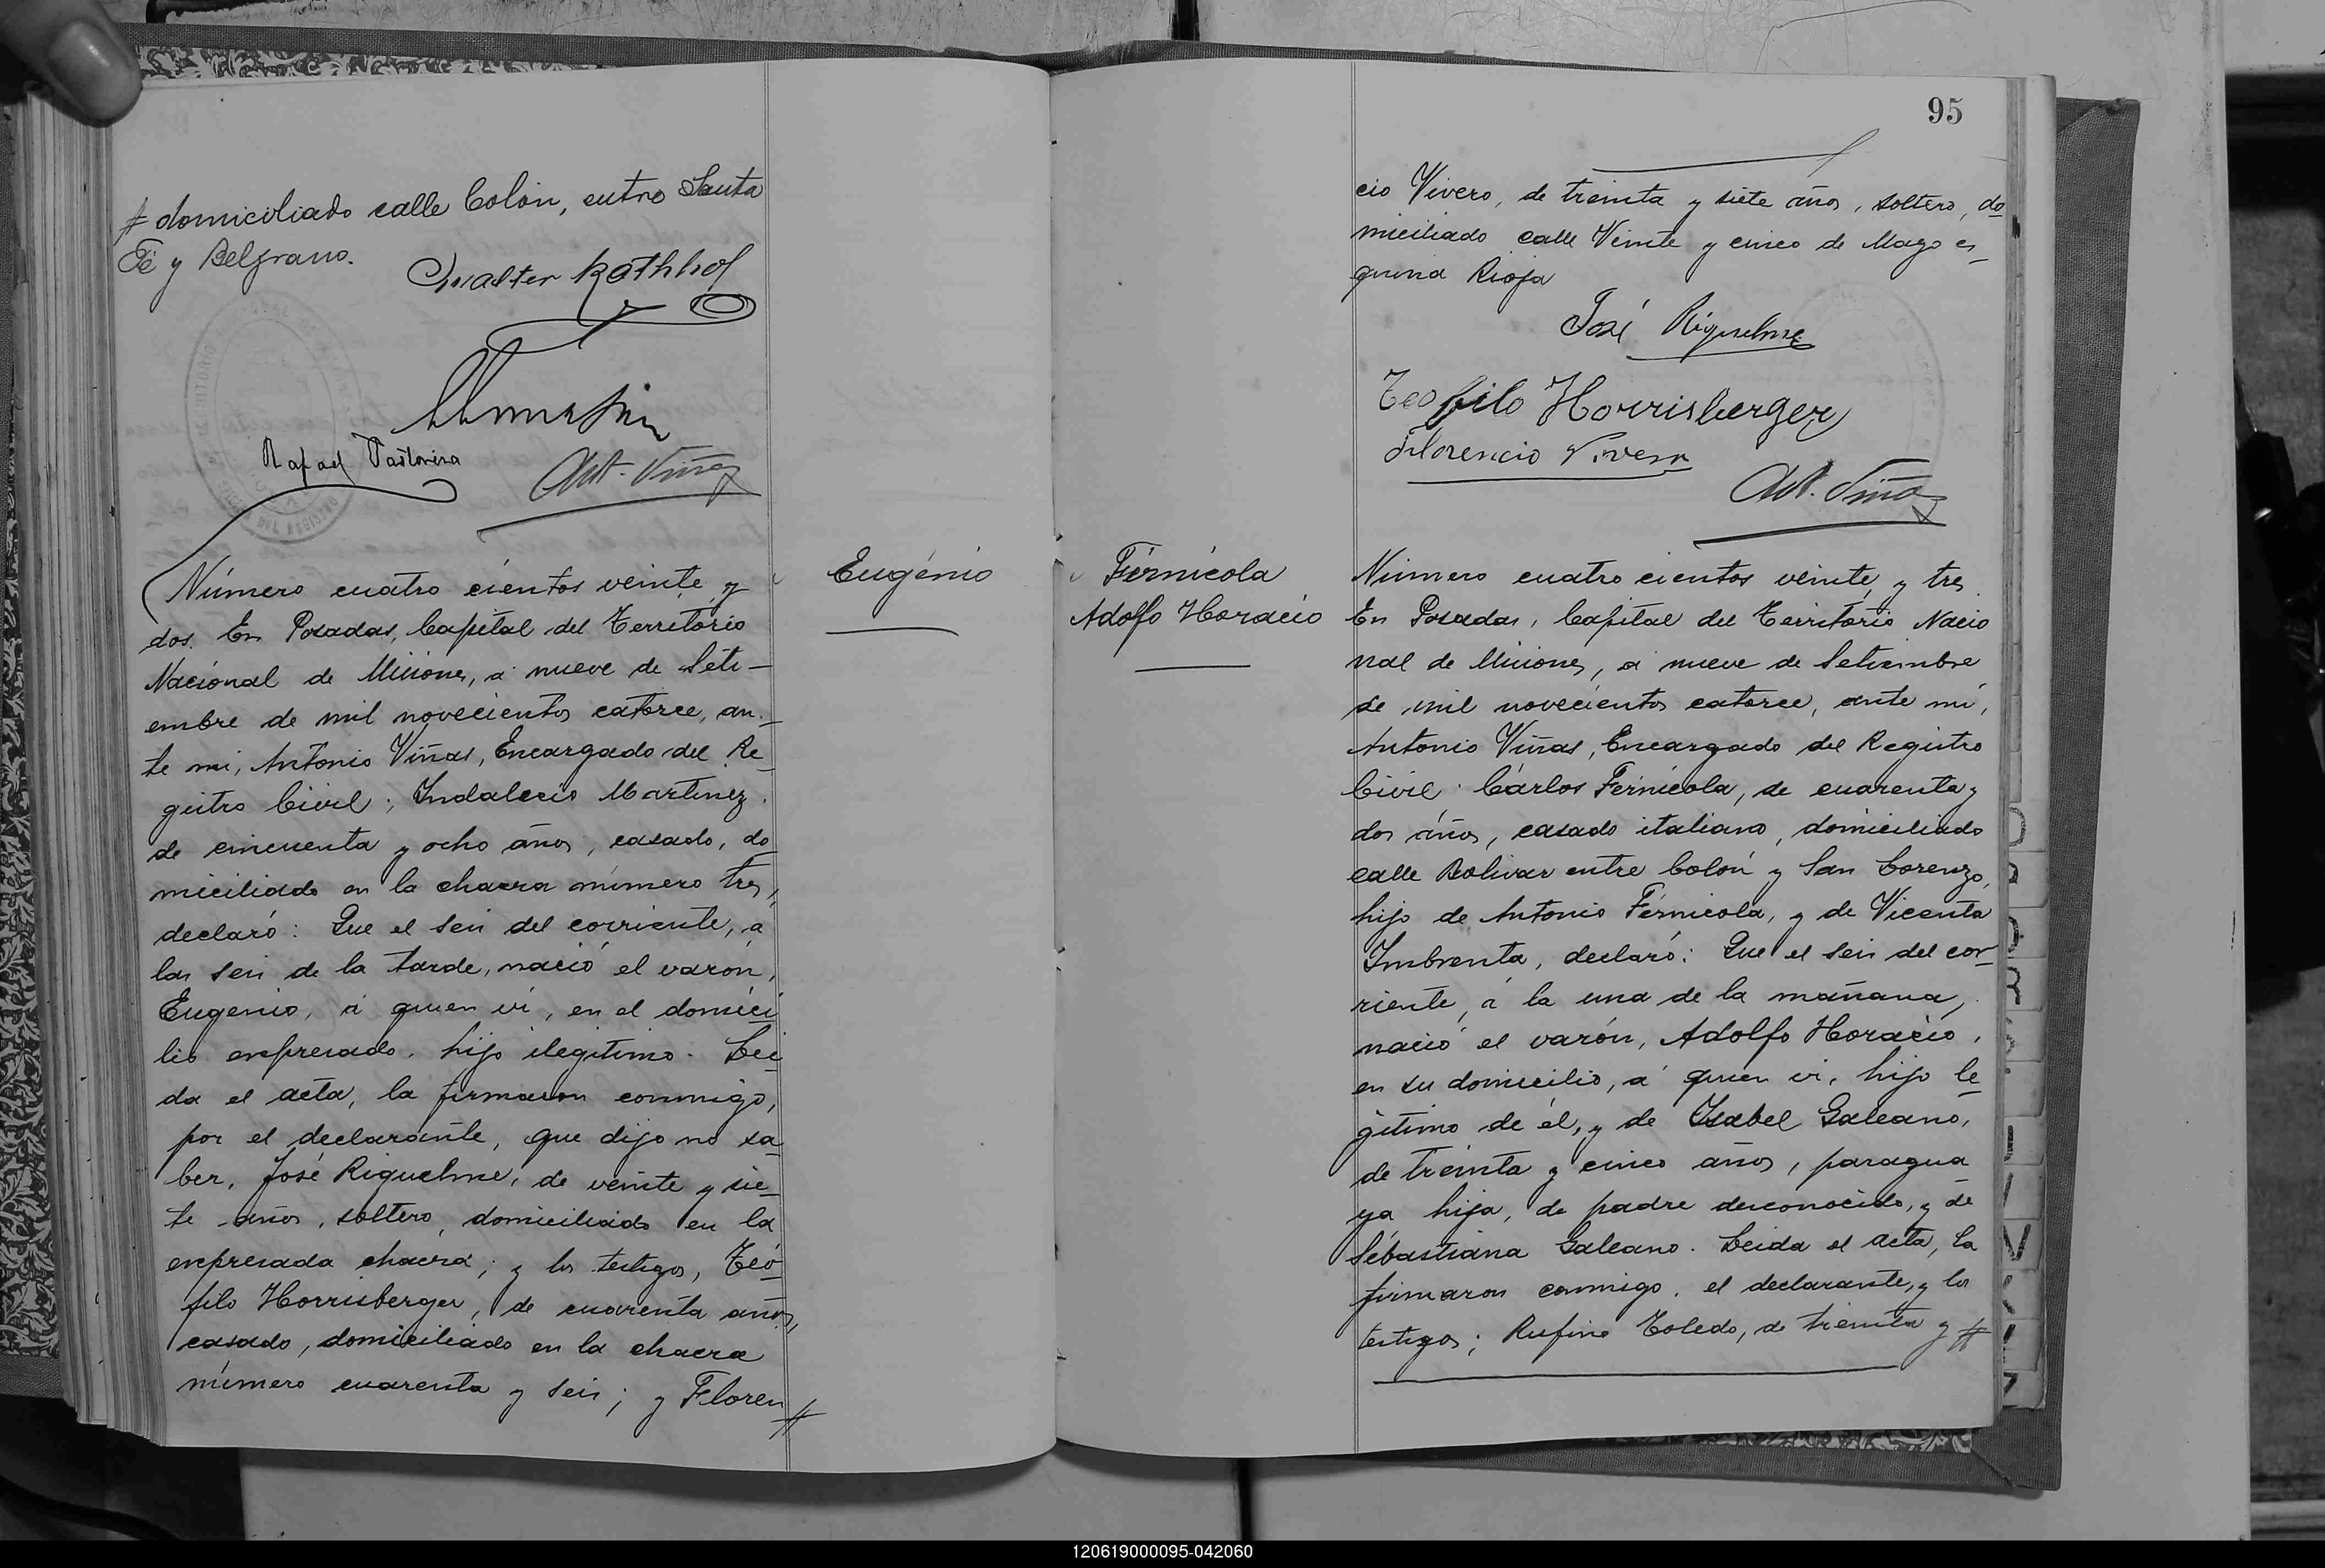 # domiciliado calle Colón, entre Santa
Fé y Belgrano.
Gualter Kathhof
Rafael Pastoriza
Ant. Viñas
Número cuatro cientos veinte y
dos. En Posadas, Capital del Territorio
Nacional de Misiones, á nueve de Seti-
embre de mil novecientos catorce, an-
te mi, Antonio Viñas, Encargado del Re-
gistro Civil; Indalecio Martinez.
de cincuenta y ocho años, casado, do-
miciliado en la chacra número tres,
declaró: Que el seis del corriente, á
las seis de la tarde, nació el varón,
Eugenio, á quien vi, en el domici-
lio expresado. hijo ilegitimo. Lei-
da el acta, la firmaron conmigo,
por el declarante, que dijo no sa-
ber, José Riquelme, de veinte y sie-
te años, soltero, domiciliado en la
expresada chacra; y los testigos, Teó-
filo Horrisberger, de cuarenta años,
casado, domiciliado en la chacra
número cuarenta y seis; y Floren #
Eugénio
95
cio Vivero, de treinta y siete años, soltero, do-
miciliado calle Veinte y cinco de Mayo es-
quina Rioja
José Riquelme
Teofilo Horrisberger
Florencio Vivero
Ant. Viñas
Férnicola
Adolfo Horacio
Número cuatro cientos veinte y tres.
En Posadas, Capital del Territorio Nacio
nal de Misiones, á nueve de Setiembre
de mil novecientos catorce, ante mi,
Antonio Viñas, Encargado del Registro
Civil: Cárlos Férnicola, de cuarenta y
dos años, casado italiano, domiciliado
calle Bolivar entre Colón y San Lorenzo,
hijo de Antonio Férnicola, y de Vicenta
Imbrenta, declaró: Que el seis del cor-
riente, á la una de la mañana,
nació el varón, Adolfo Horacio,
en su domicilio, á quien vi, hijo le-
gitimo de él, y de Isabel Galeano,
de treinta y cinco años, paragua
ya hija, de padre desconocido, y de
Sébastiana Galeano. Leida el acta, la
firmaron conmigo, el declarante, y los
testigos; Rufino Toledo, de treinta y #
120619000095-042060